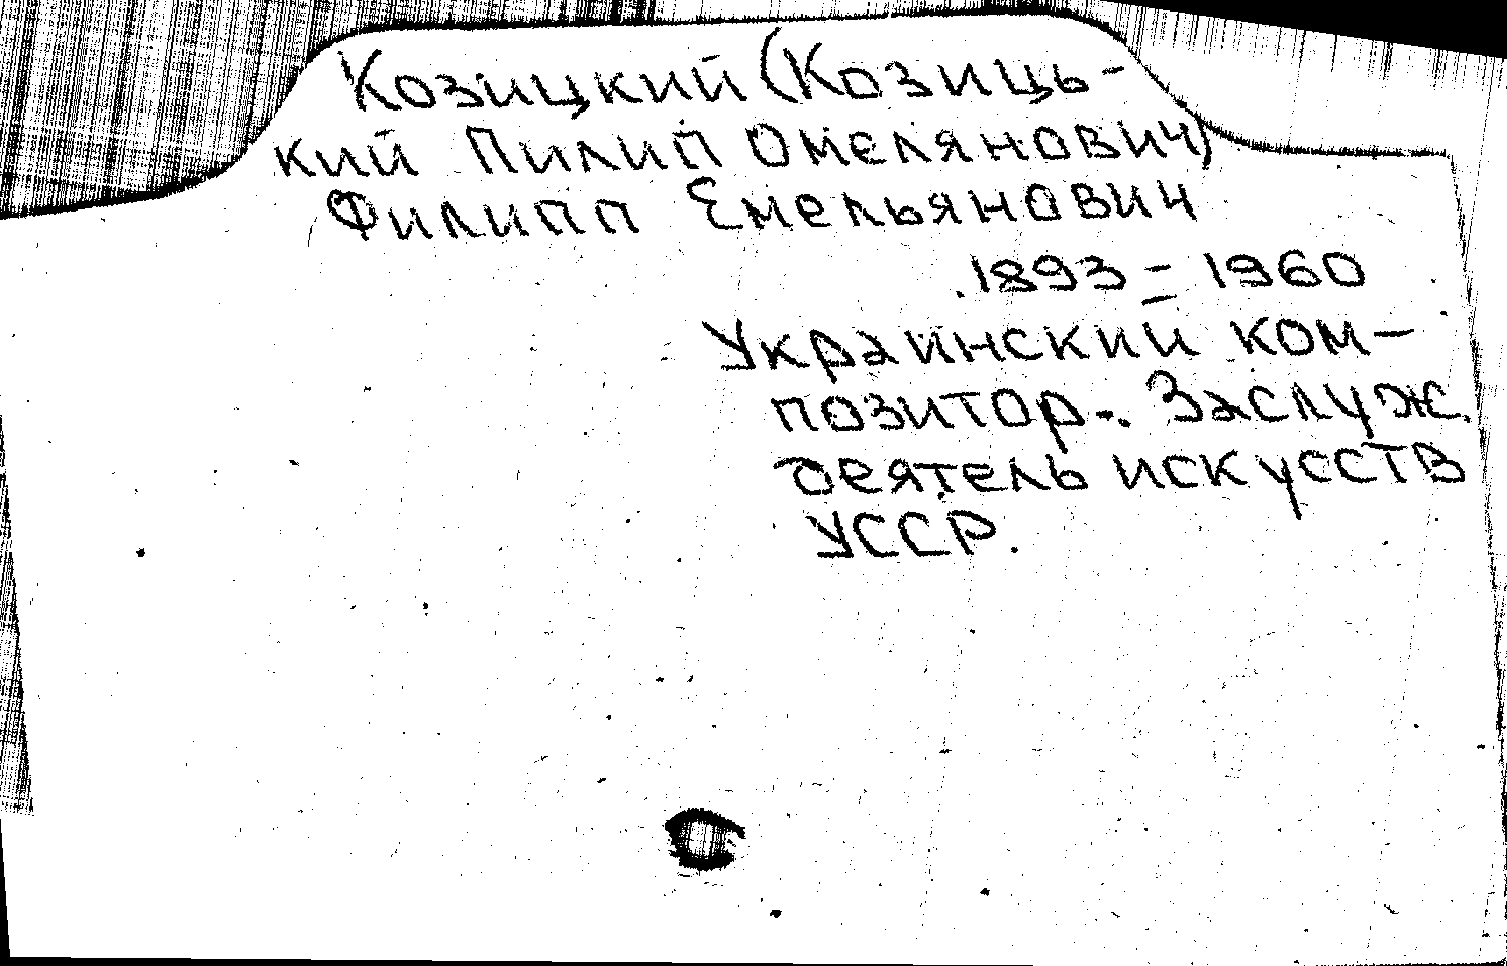 Козицкий (Козиць-
кий Пилип Омелянович)
Филипп Емельянович
1893 - 1960
Украинский ком-
позитор. Заслуж.
деятель искусств
УССР.